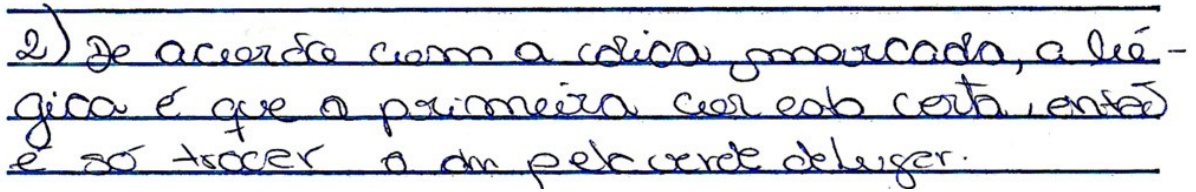 2) De acuordo com a cdica marcada, a lió-
gica é que a primeira cor está certa, então
é só trocer o am pela verde de luger.